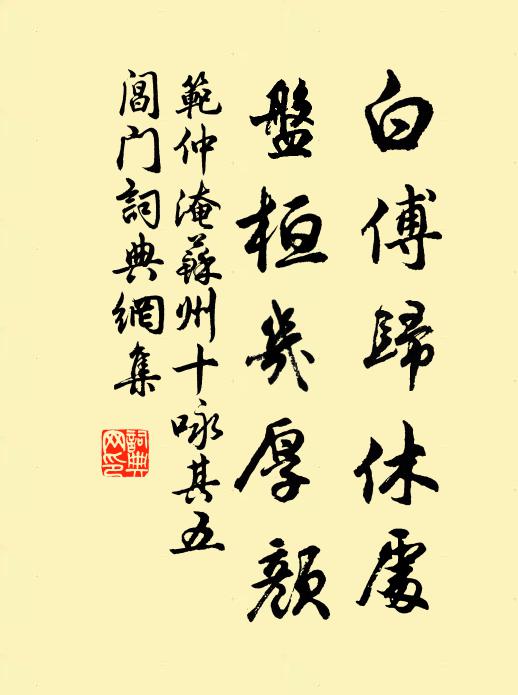 白傅歸休處
盤桓幾厚顏
範仲淹蘇州十咏其五
閶门詞典網集
詞典网印